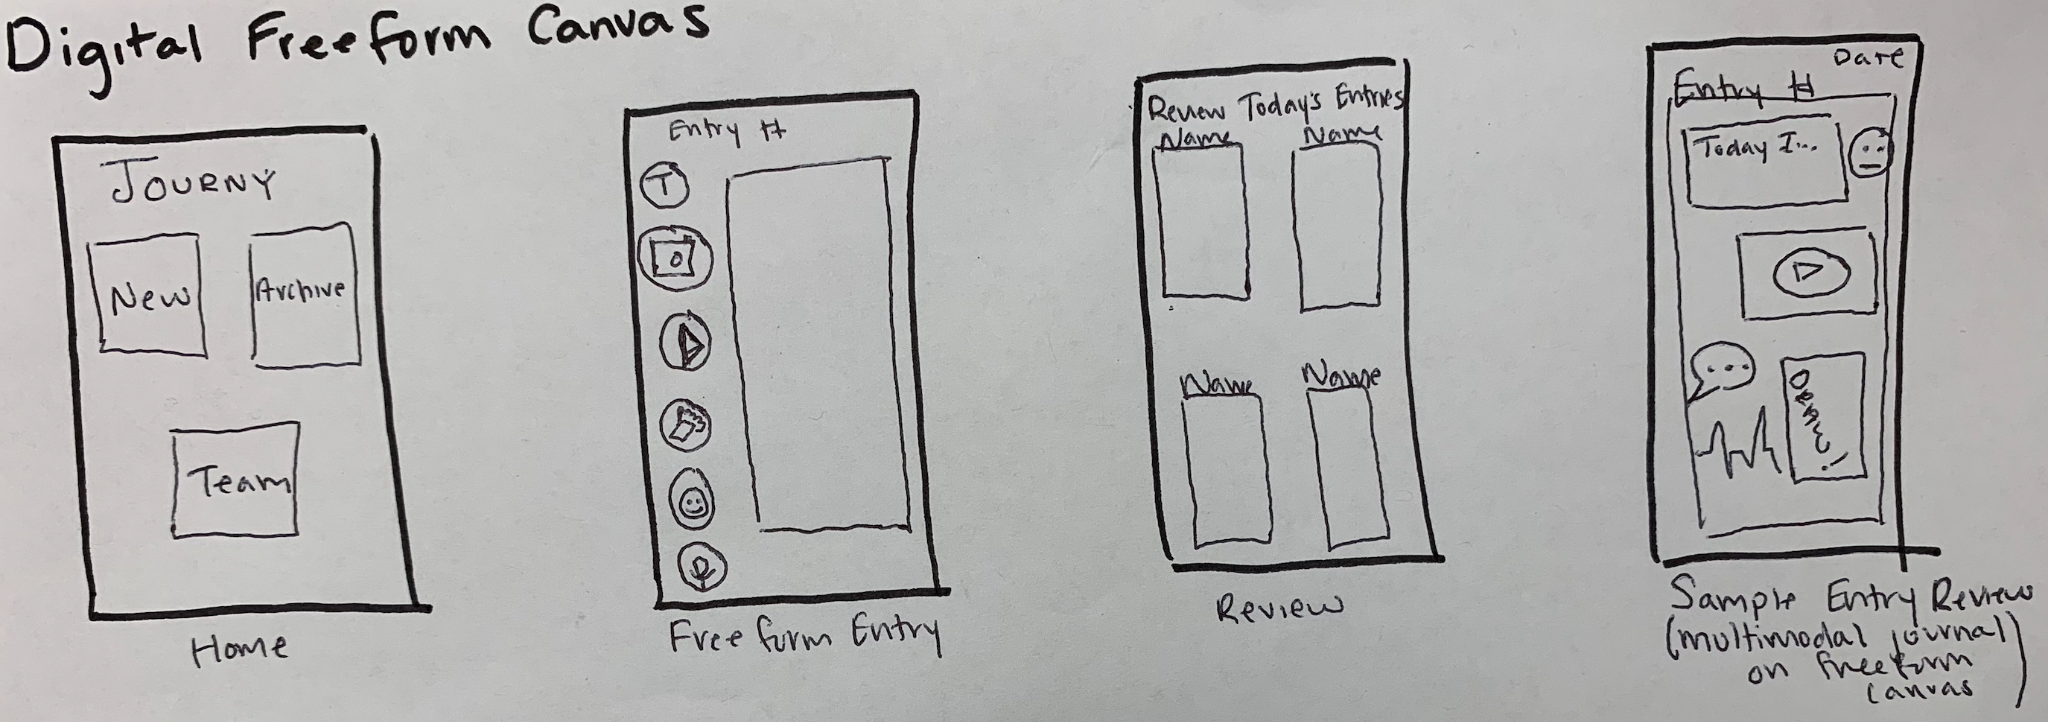 Digital Freeform Canvas
JOURNY
New
Archive
Team
Home
Entry #
T
Freeform Entry
Review Today's Entries
Name
Name
Name
Name
Review
Date
Entry #
Today I...
Sample Entry Review
(multimodal journal)
on freeform
canvas